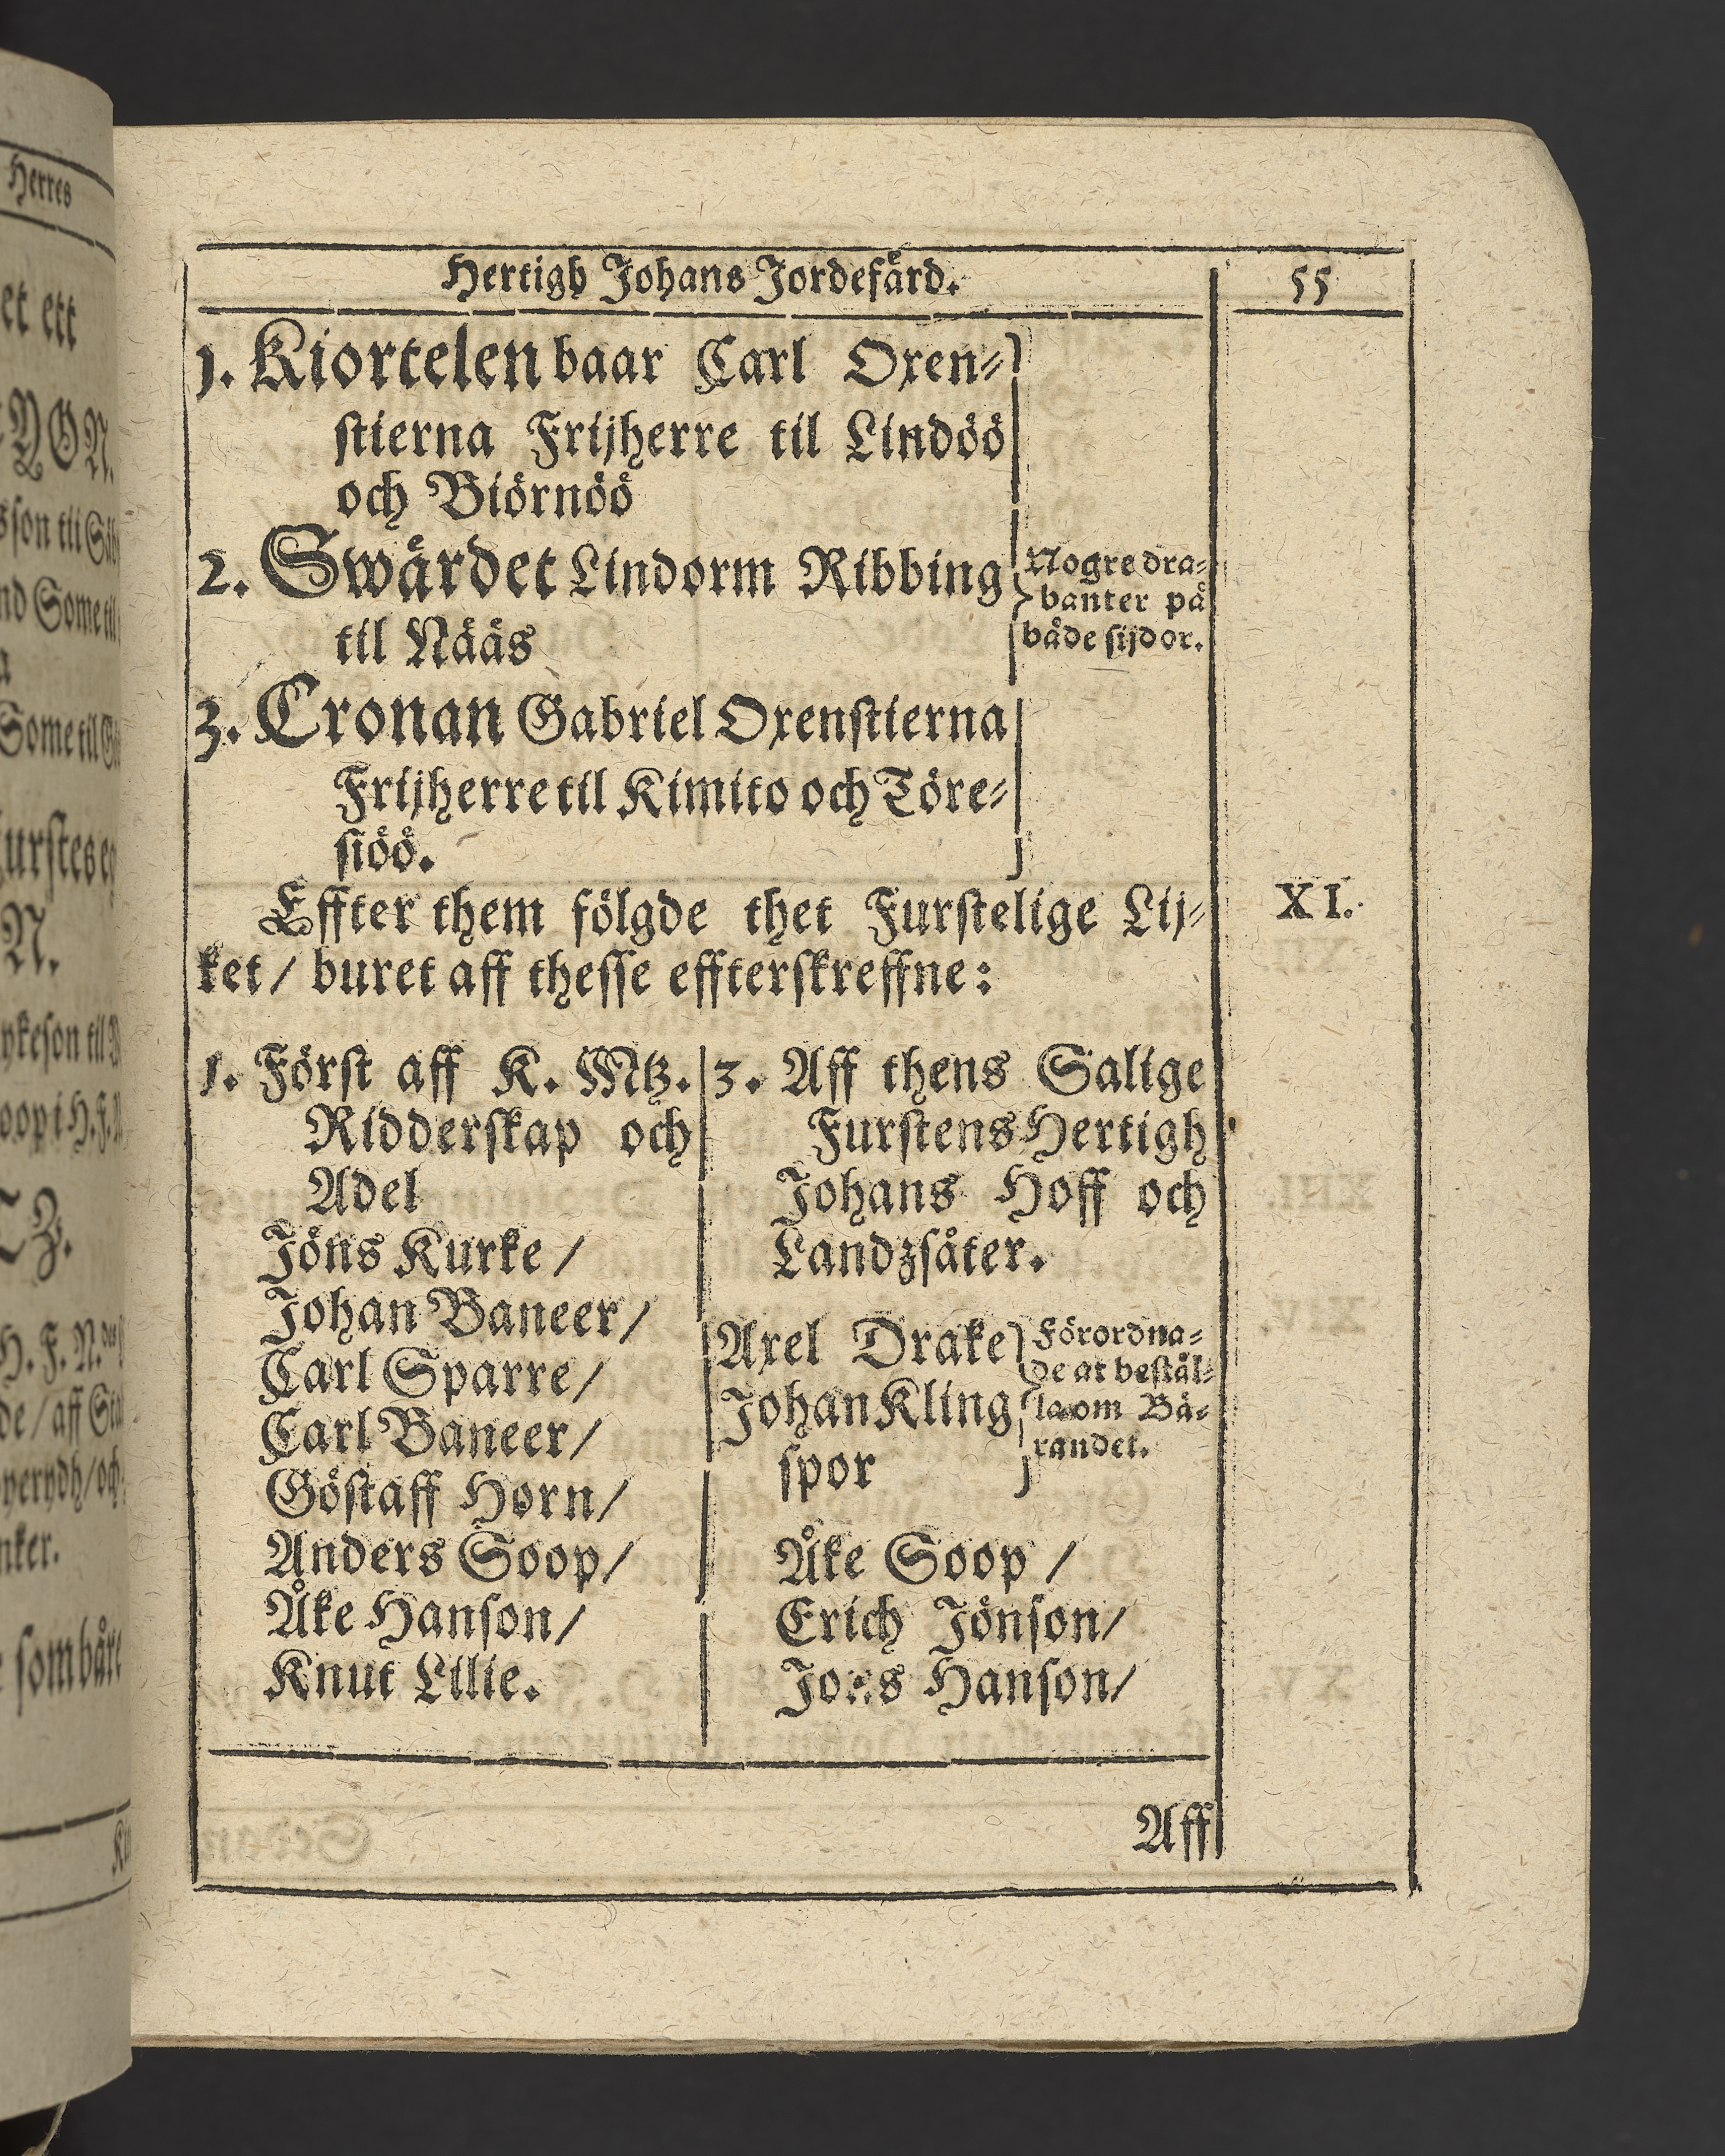 Hertigh Johans Jordefärd.
55
1. Kiortelen baar Carl Oxen⸗
stierna Frijherre til Lindöö
och Biörnöö
2. Swärdet Lindorm Ribbing
til Nääs
Nogre dra⸗
banter på
både sijdor.
3. Cronan Gabriel Oxenstierna
Frijherre til Kimito och Töre⸗
siöö.
Effter them fölgde thet Furstelige Lij⸗
XI.
ket / buret aff thesse effterskreffne:
1. Först aff K. Mtz.
Ridderskap och
Adel
Jöns Kurke /
Johan Baneer /
Carl Sparre /
Carl Baneer /
Göstaff Horn /
Anders Soop /
Åke Hanson /
Knut Lilie.
3. Aff thens Salige
Furstens Hertigh
Johans Hoff och
Landzsåter.
Axel Drake
Johan Kling
spor
Förordna⸗
de at bestål⸗
la om Bä⸗
randet.
Åke Soop /
Erich Jönson /
Hanson /
Aff
Herres
et ett